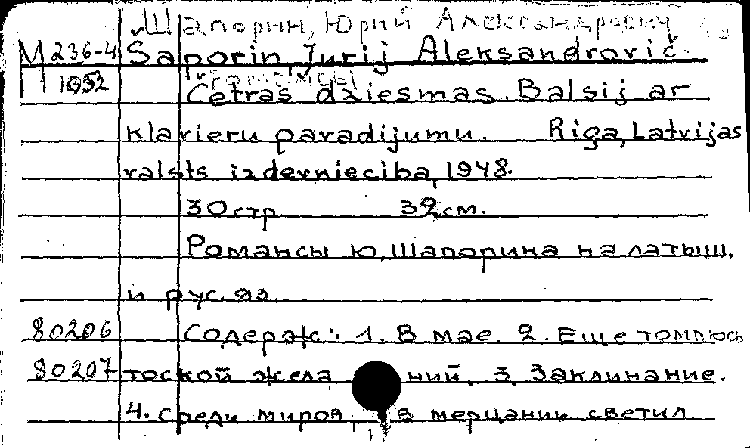 Шапорин, Юрий Александрович
М 236-4 Šaporin, Jurij Aleksandrovič.
1052 Četras dziesmas Balsij ar
klavieru pavadijumu. Riga, Latvijas
valsts izdevnieciba, 1948.
30 стр 32 см.
Романсы Ю. Шапорина на латыш.
и рус. яз
80206 Содерж: 1. В мае. 2. Еще томлюсь
80207 тоской жела ний. 3. Заклинание.
4. Среди миров, в мерцании светил